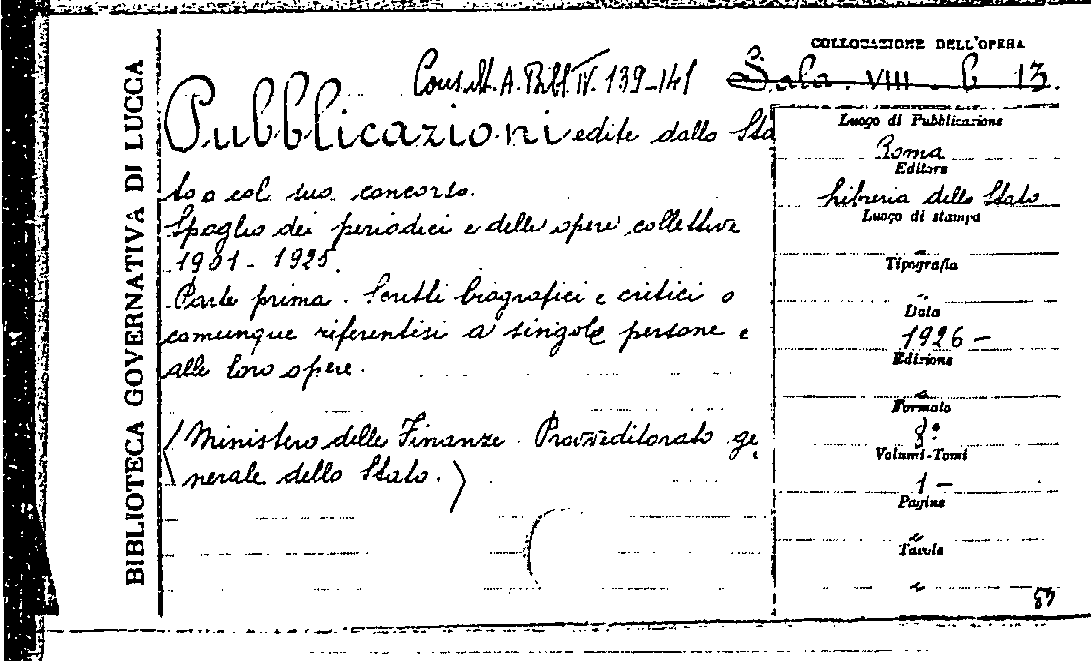 BIBLIOTECA GOVERNATIVA DI LUCCA
COLLOCAZIONE DELL'OPERA
Consult. A. Bibl. IV. 139-141
Sala VIII. b 13.
Pubblicazioni edite dallo Sta
to o col suo concorso.
Spoglio dei periodici e delle opere collettive
1901 - 1925.
Parte prima. Scritti biografici e critici o
comunque riferentisi a singole persone e
alle loro opere.
(Ministero delle Finanze. Provveditorato ge
nerale dello Stato.)
Luogo di Pubblicazione
Roma
Editore
Libreria dello Stato
Luogo di stampa
Tipografia
Data
1926 -
Edizione
Formato
8°
Volumi-Tomi
1 -
Pagine
Tavole